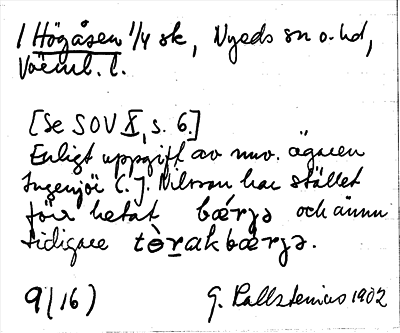 1 Högåsen 1/4 sk, Nyeds sn o. hd,
Värml. l.
[Se SOV X, s. 6.]
Enligt uppgift av nuv. ägaren
Ingenjör C. J. Nilsson har stället
förr hetat bǽrjə och ännu
tidigare tòrakbærjə.
9(16) G. Kallstenius 1902